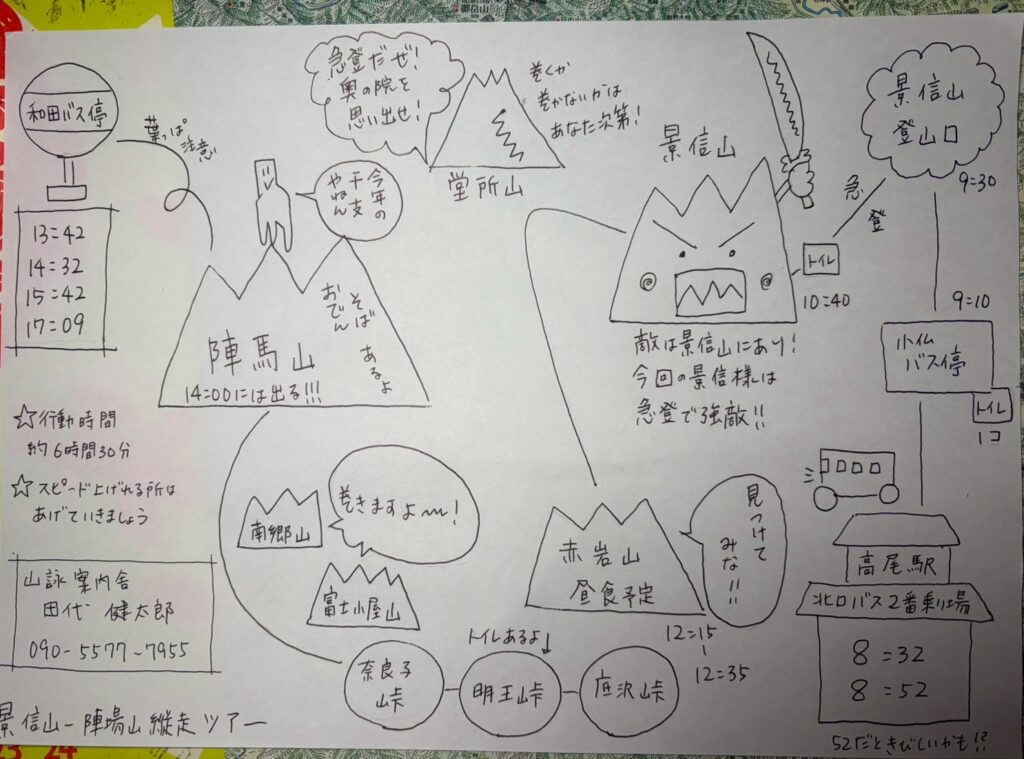 和田バス停
葉っぱ
注意
13:42
14:32
15:42
17:09
急登だぜ!
奥の院を
思い出せ!
巻くか
巻かないかは
あなた次第!
堂所山
今年の
干支
やねん
陣馬山
14:00には出る!!!
そば
おでん
あるよ
景信山
敵は景信山にあり!
今回の景信様は
急登で強敵!!
トイレ
10:40
急登
景信山
登山口
9:30
9:10
小仏
バス停
トイレ
1コ
高尾駅
北口バス2番乗り場
8:32
8:52
52だときびしいかも!?
見つけて
みな!!
赤岩山
昼食予定
12:15
-
12:35
底沢峠
トイレあるよ↓
明王峠
奈良子
峠
巻きますよ〜!
南郷山
富士小屋山
☆行動時間
約6時間30分
☆スピード上げれる所は
あげていきましょう
山詠案内舎
田代 健太郎
090-5577-7955
景信山-陣場山縦走ツアー
23 24